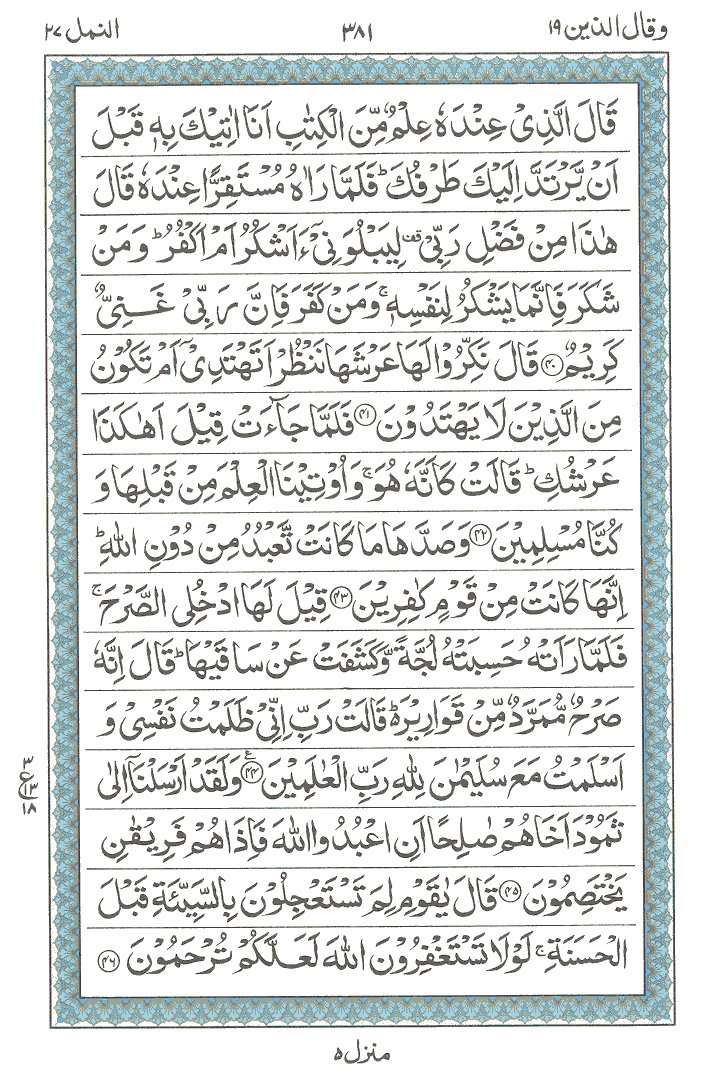 وقال الذين ۱۹
۳۸۱
النمل ۲۷
قَالَ الَّذِیْ عِنْدَهٗ عِلْمٌ مِّنَ الْكِتٰبِ اَنَا اٰتِیْكَ بِهٖ قَبْلَ
اَنْ یَّرْتَدَّ اِلَیْكَ طَرْفُكَ ؕ فَلَمَّا رَاٰهُ مُسْتَقِرًّا عِنْدَهٗ قَالَ
هٰذَا مِنْ فَضْلِ رَبِّیْ ۫ۖ لِیَبْلُوَنِیْۤ ءَاَشْكُرُ اَمْ اَكْفُرُ ؕ وَ مَنْ
شَكَرَ فَاِنَّمَا یَشْكُرُ لِنَفْسِهٖ ۚ وَ مَنْ كَفَرَ فَاِنَّ رَبِّیْ غَنِیٌّ
كَرِیْمٌ ﴿۴۰﴾ قَالَ نَكِّرُوْا لَهَا عَرْشَهَا نَنْظُرْ اَتَهْتَدِیْۤ اَمْ تَكُوْنُ
مِنَ الَّذِیْنَ لَا یَهْتَدُوْنَ ﴿۴۱﴾ فَلَمَّا جَآءَتْ قِیْلَ اَهٰكَذَا
عَرْشُكِ ؕ قَالَتْ كَاَنَّهٗ هُوَ ۚ وَ اُوْتِیْنَا الْعِلْمَ مِنْ قَبْلِهَا وَ
كُنَّا مُسْلِمِیْنَ ﴿۴۲﴾ وَ صَدَّهَا مَا كَانَتْ تَّعْبُدُ مِنْ دُوْنِ اللّٰهِ ؕ
اِنَّهَا كَانَتْ مِنْ قَوْمٍ كٰفِرِیْنَ ﴿۴۳﴾ قِیْلَ لَهَا ادْخُلِی الصَّرْحَ ۚ
فَلَمَّا رَاَتْهُ حَسِبَتْهُ لُجَّةً وَّ كَشَفَتْ عَنْ سَاقَیْهَا ؕ قَالَ اِنَّهٗ
صَرْحٌ مُّمَرَّدٌ مِّنْ قَوَارِیْرَ ؕ۬ قَالَتْ رَبِّ اِنِّیْ ظَلَمْتُ نَفْسِیْ وَ
اَسْلَمْتُ مَعَ سُلَیْمٰنَ لِلّٰهِ رَبِّ الْعٰلَمِیْنَ ﴿۴۴﴾ وَ لَقَدْ اَرْسَلْنَاۤ اِلٰی
۳
ع
۱۳
۱۸
ثَمُوْدَ اَخَاهُمْ صٰلِحًا اَنِ اعْبُدُوا اللّٰهَ فَاِذَا هُمْ فَرِیْقٰنِ
یَخْتَصِمُوْنَ ﴿۴۵﴾ قَالَ یٰقَوْمِ لِمَ تَسْتَعْجِلُوْنَ بِالسَّیِّئَةِ قَبْلَ
الْحَسَنَةِ ۚ لَوْ لَا تَسْتَغْفِرُوْنَ اللّٰهَ لَعَلَّكُمْ تُرْحَمُوْنَ ﴿۴۶﴾
منزل ۵